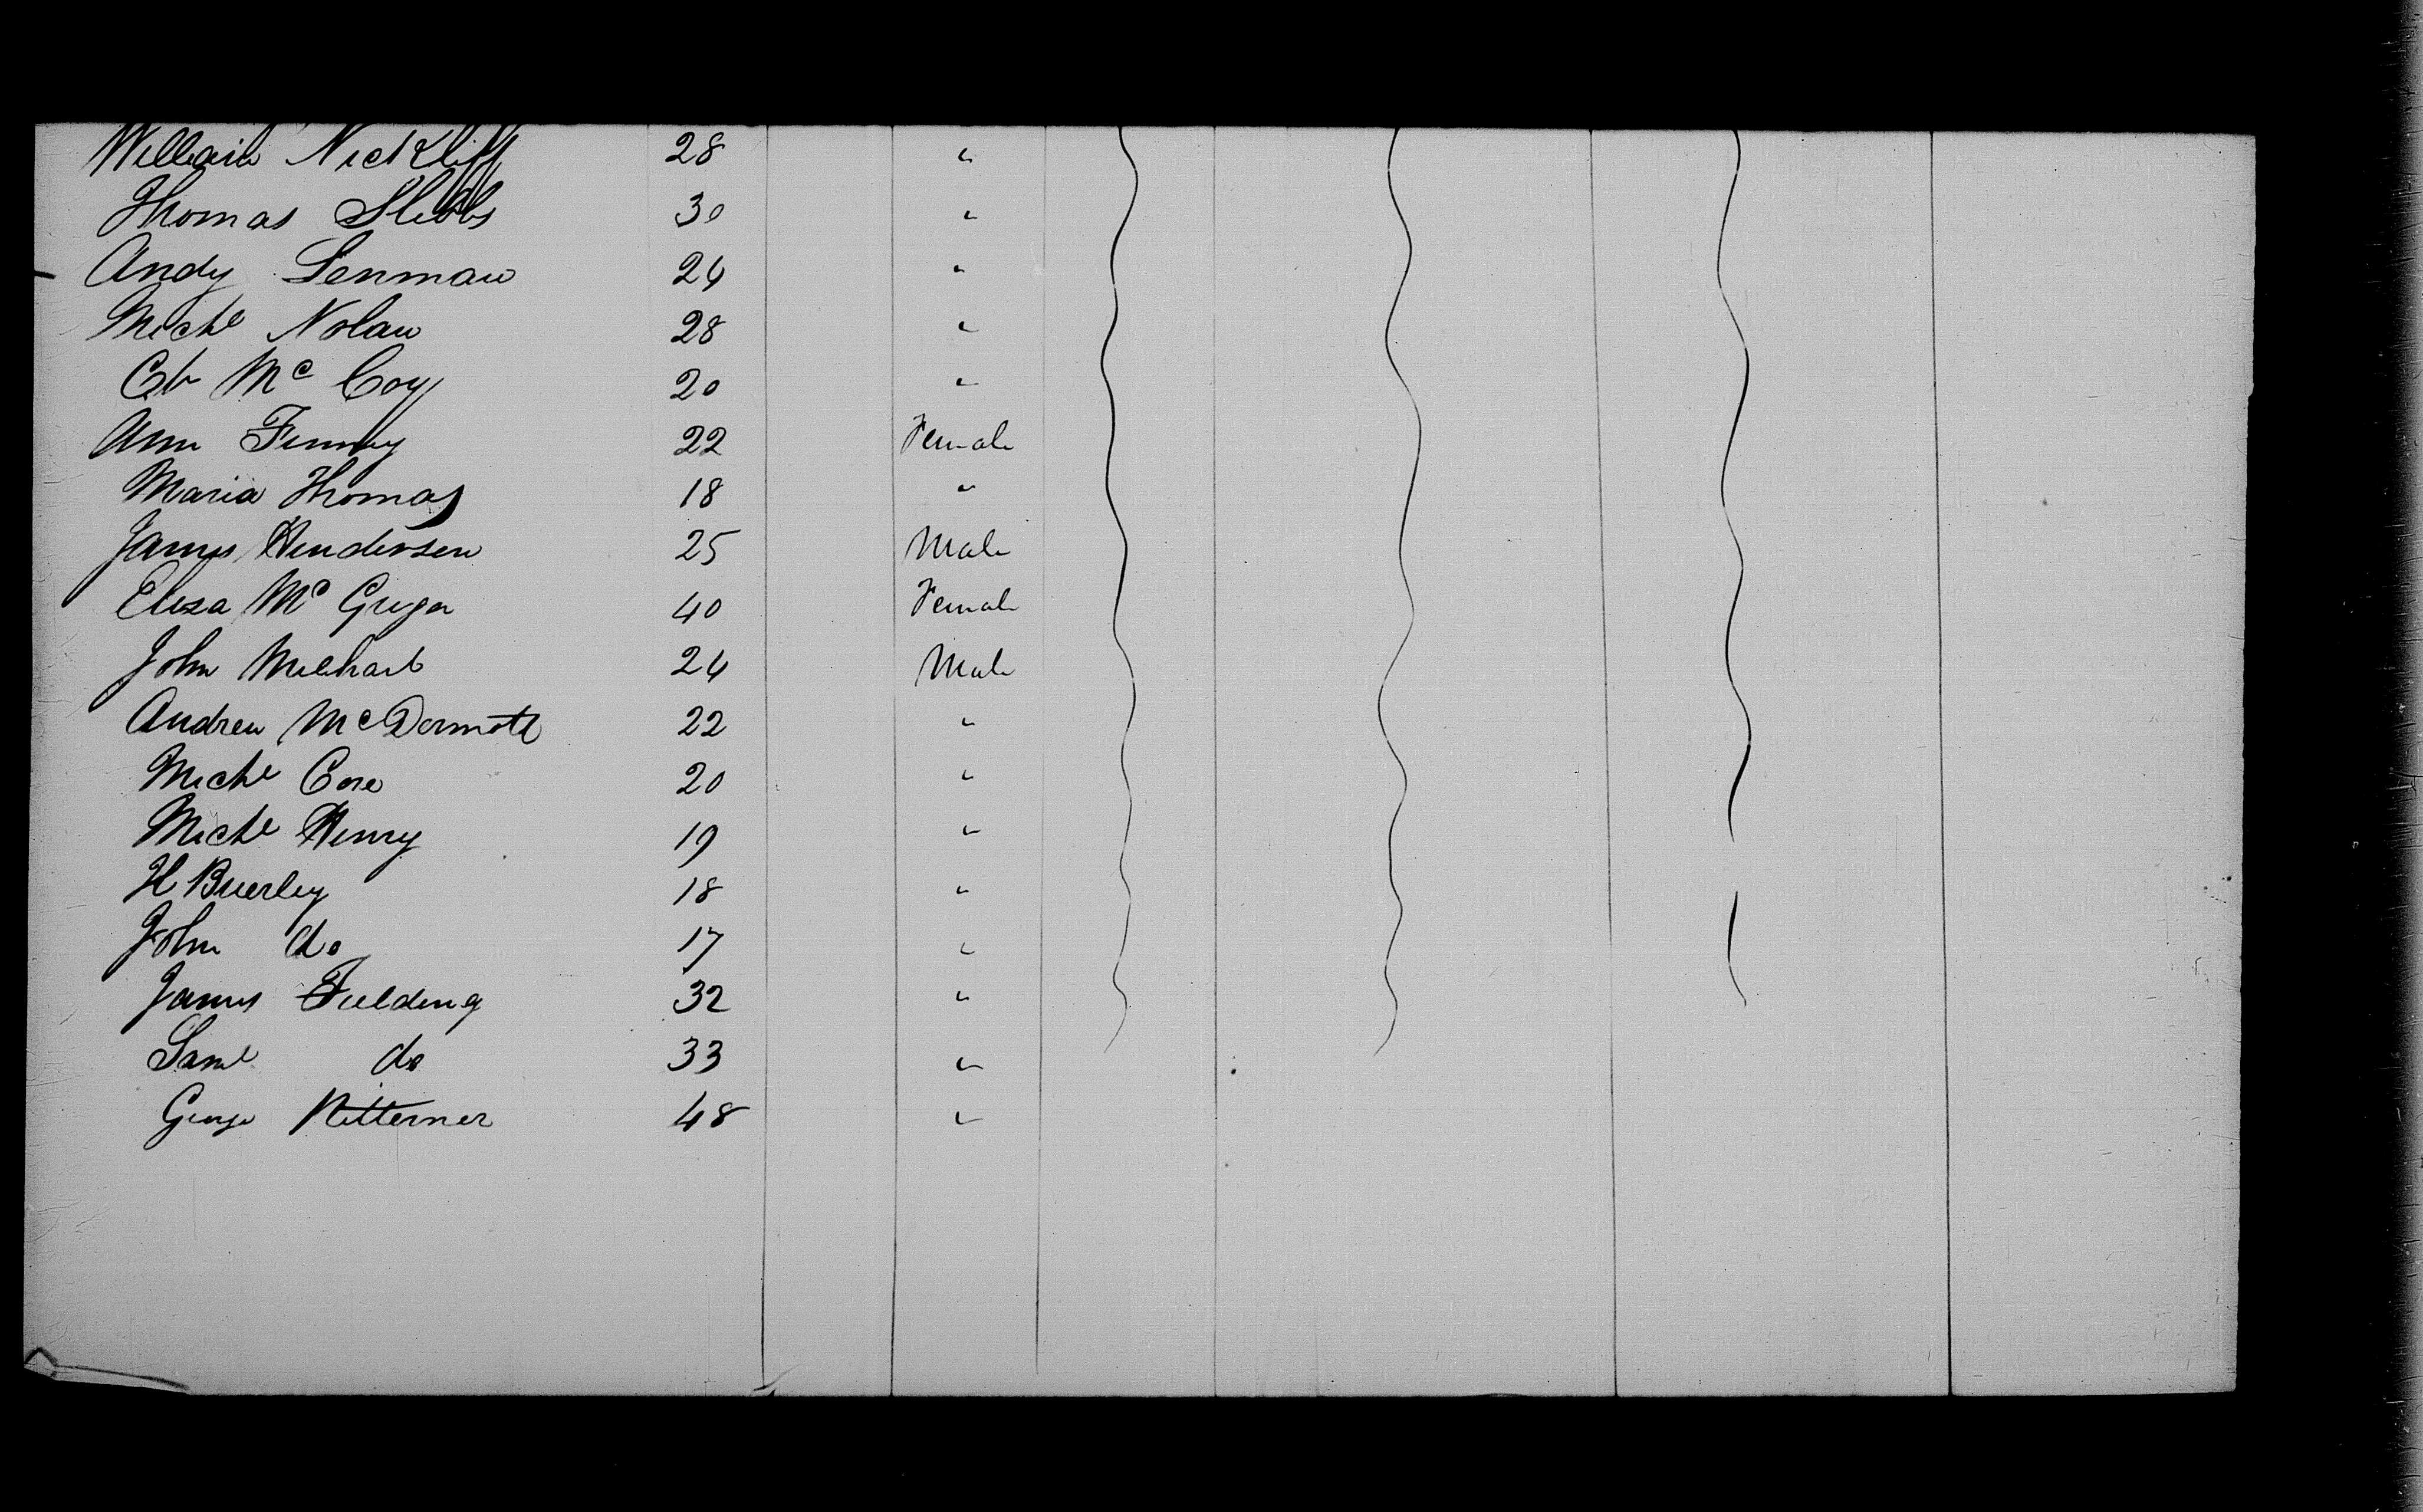 William Nickliff 28 "
Thomas Stibbs 30 "
Andy Lenman 24 "
Michl Nolan 28 "
Mc Coy 20 "
Ann Finney 22 Female
Maria Thomas 18 "
James Henderson 25 Male
Eliza Mc Gregor 40 Female
John 24 Male
Andrew McDermott 22 "
Michl Core 20 "
Michl Henry 19 "
H Buerley 18 "
John do 17 "
James Fielding 32 "
Saml do 33 "
George 48 "